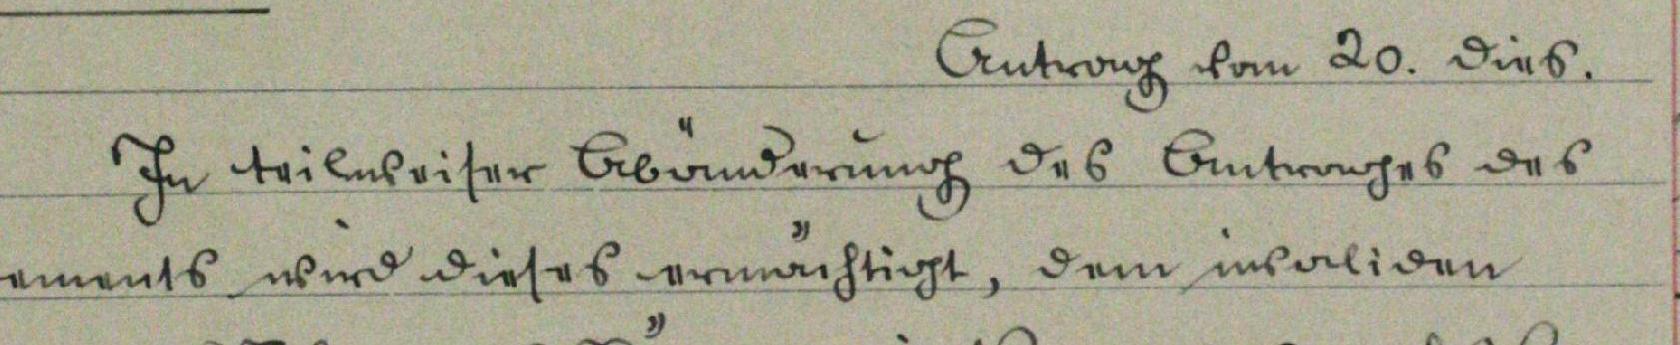 Antrag vom 20. dies.
In teilweiser Abänderung des Antrages des
ements wird dieses ermächtigt, dem invaliden